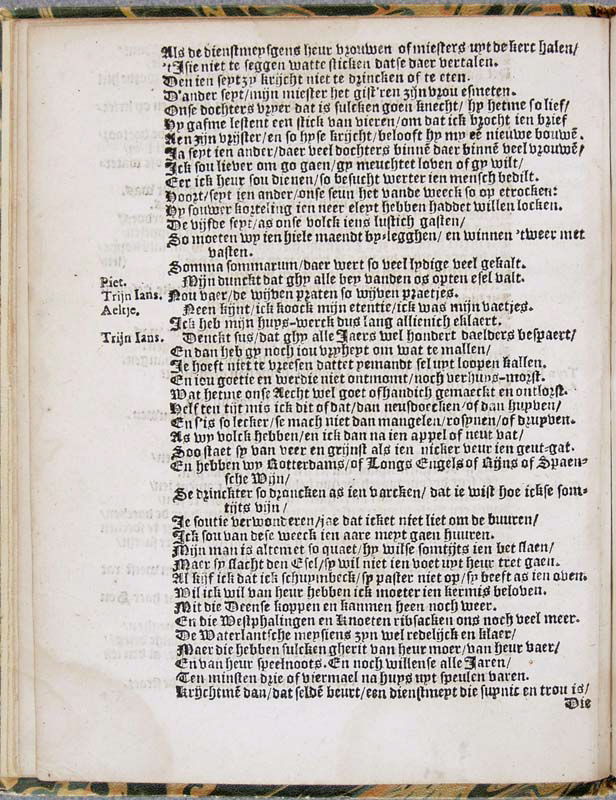 Als de dienstmeysgens heur vrouwen of miesters uyt de kerc halen/
't Isie niet te seggen watte sticken datse daer vertalen.
Den ien seyt zy krijcht niet te drincken of te eten.
D'ander seyt/mijn miester het gist'ren zijn vrou esmeten.
Onse dochters vryer dat is sulcken goen knecht/ hy hetme so lief/
Hy gafme lestent een stick van vieren/om dat ick brocht ien brief
Aen zijn vrijster/en so hyse krijcht/ belooft hy my eẽ nieuwe bouwẽ.
Ja seyt ien ander/daer veel dochters binnẽ daer binnẽ veel vrouwẽ/
Ick sou liever om go gaen/gy meuchtet loven of gy wilt/
Eer ick heur sou dienen/so besucht werter ien mensch bedilt.
Hoort/seyt ien ander/onse seun het vande weeck so op etrocken:
Hy souwer korteling ien neer eleyt hebben haddet willen locken.
De vijfde seyt/as onse volck iens lustich gasten/
So moeten wy ien hiele maendt by-legghen/en winnen 'tweer met
vasten.
Somma sommarum/daer wert so veel lydige veel gekalt.
Piet. Mijn dunckt dat ghy alle bey vanden os opten esel valt.
Trijn Ians. Nou vaer/de wijven praten so wijven praetjes.
Aeltje. Neen kijnt/ick koock mijn etentie/ick was mijn vaetjes.
Ick heb mijn huys-werck dus lang allienich eklaert.
Trijn Ians. Denckt sus/dat ghy alle Jaers wel hondert daelders bespaert/
En dan heb gy noch iou vryheyt om wat te mallen/
Je hoeft niet te vreesen dattet yemandt sel uyt loopen kallen.
En iou goetie en werdie niet ontnomt/noch verhuys-morst.
Wat hetme onse Aecht wel goet of handich gemaeckt en ontforst.
Helften tijt mis ick dit of dat/dan neusdoecken/of dan huyven/
En s'is so lecker/se mach niet dan mangelen/rosynen/of druyven.
As wy volck hebben/en ick dan na ien appel of neut vat/
Soo staet sy van veer en grijnst als ien nicker veur ien geut-gat.
En hebben wy Rotterdams/of Longs Engels of Rijns of Spaen-
sche Wijn/
Se drinckter so droncken as ien varcken/ dat ie wist hoe ickse som-
tijts vijn/
Je soutie verwonderen/jae dat icket niet liet om de buuren/
Ick sou van dese weeck ien aare meyt gaen huuren.
Mijn man is altemet so quaet/hy wilse somtijts ien bet slaen/
Maer sy slacht den Esel/sy wil niet ien voet uyt heur tret gaen.
Al kijf ick dat ick schuymbeck/sy paster niet op/sy beeft as ien oven.
Wil ick wil van heur hebben ick moeter ien kermis beloven.
Mit die Deense koppen en kanmen heen noch weer.
En die Westphalingen en Knoeten ribsacken ons noch veel meer.
De Waterlantsche meysiens zyn wel redelijck en klaer/
Maer die hebben sulcken gherit van heur moer/van heur vaer/
En van heur speelnoots. En noch willense alle Jaren/
Ten minsten drie of viermael na huys uyt speulen varen.
Krijchtmẽ dan/dat seldẽ beurt/een dienstmeyt die supnic en trou is/
Die